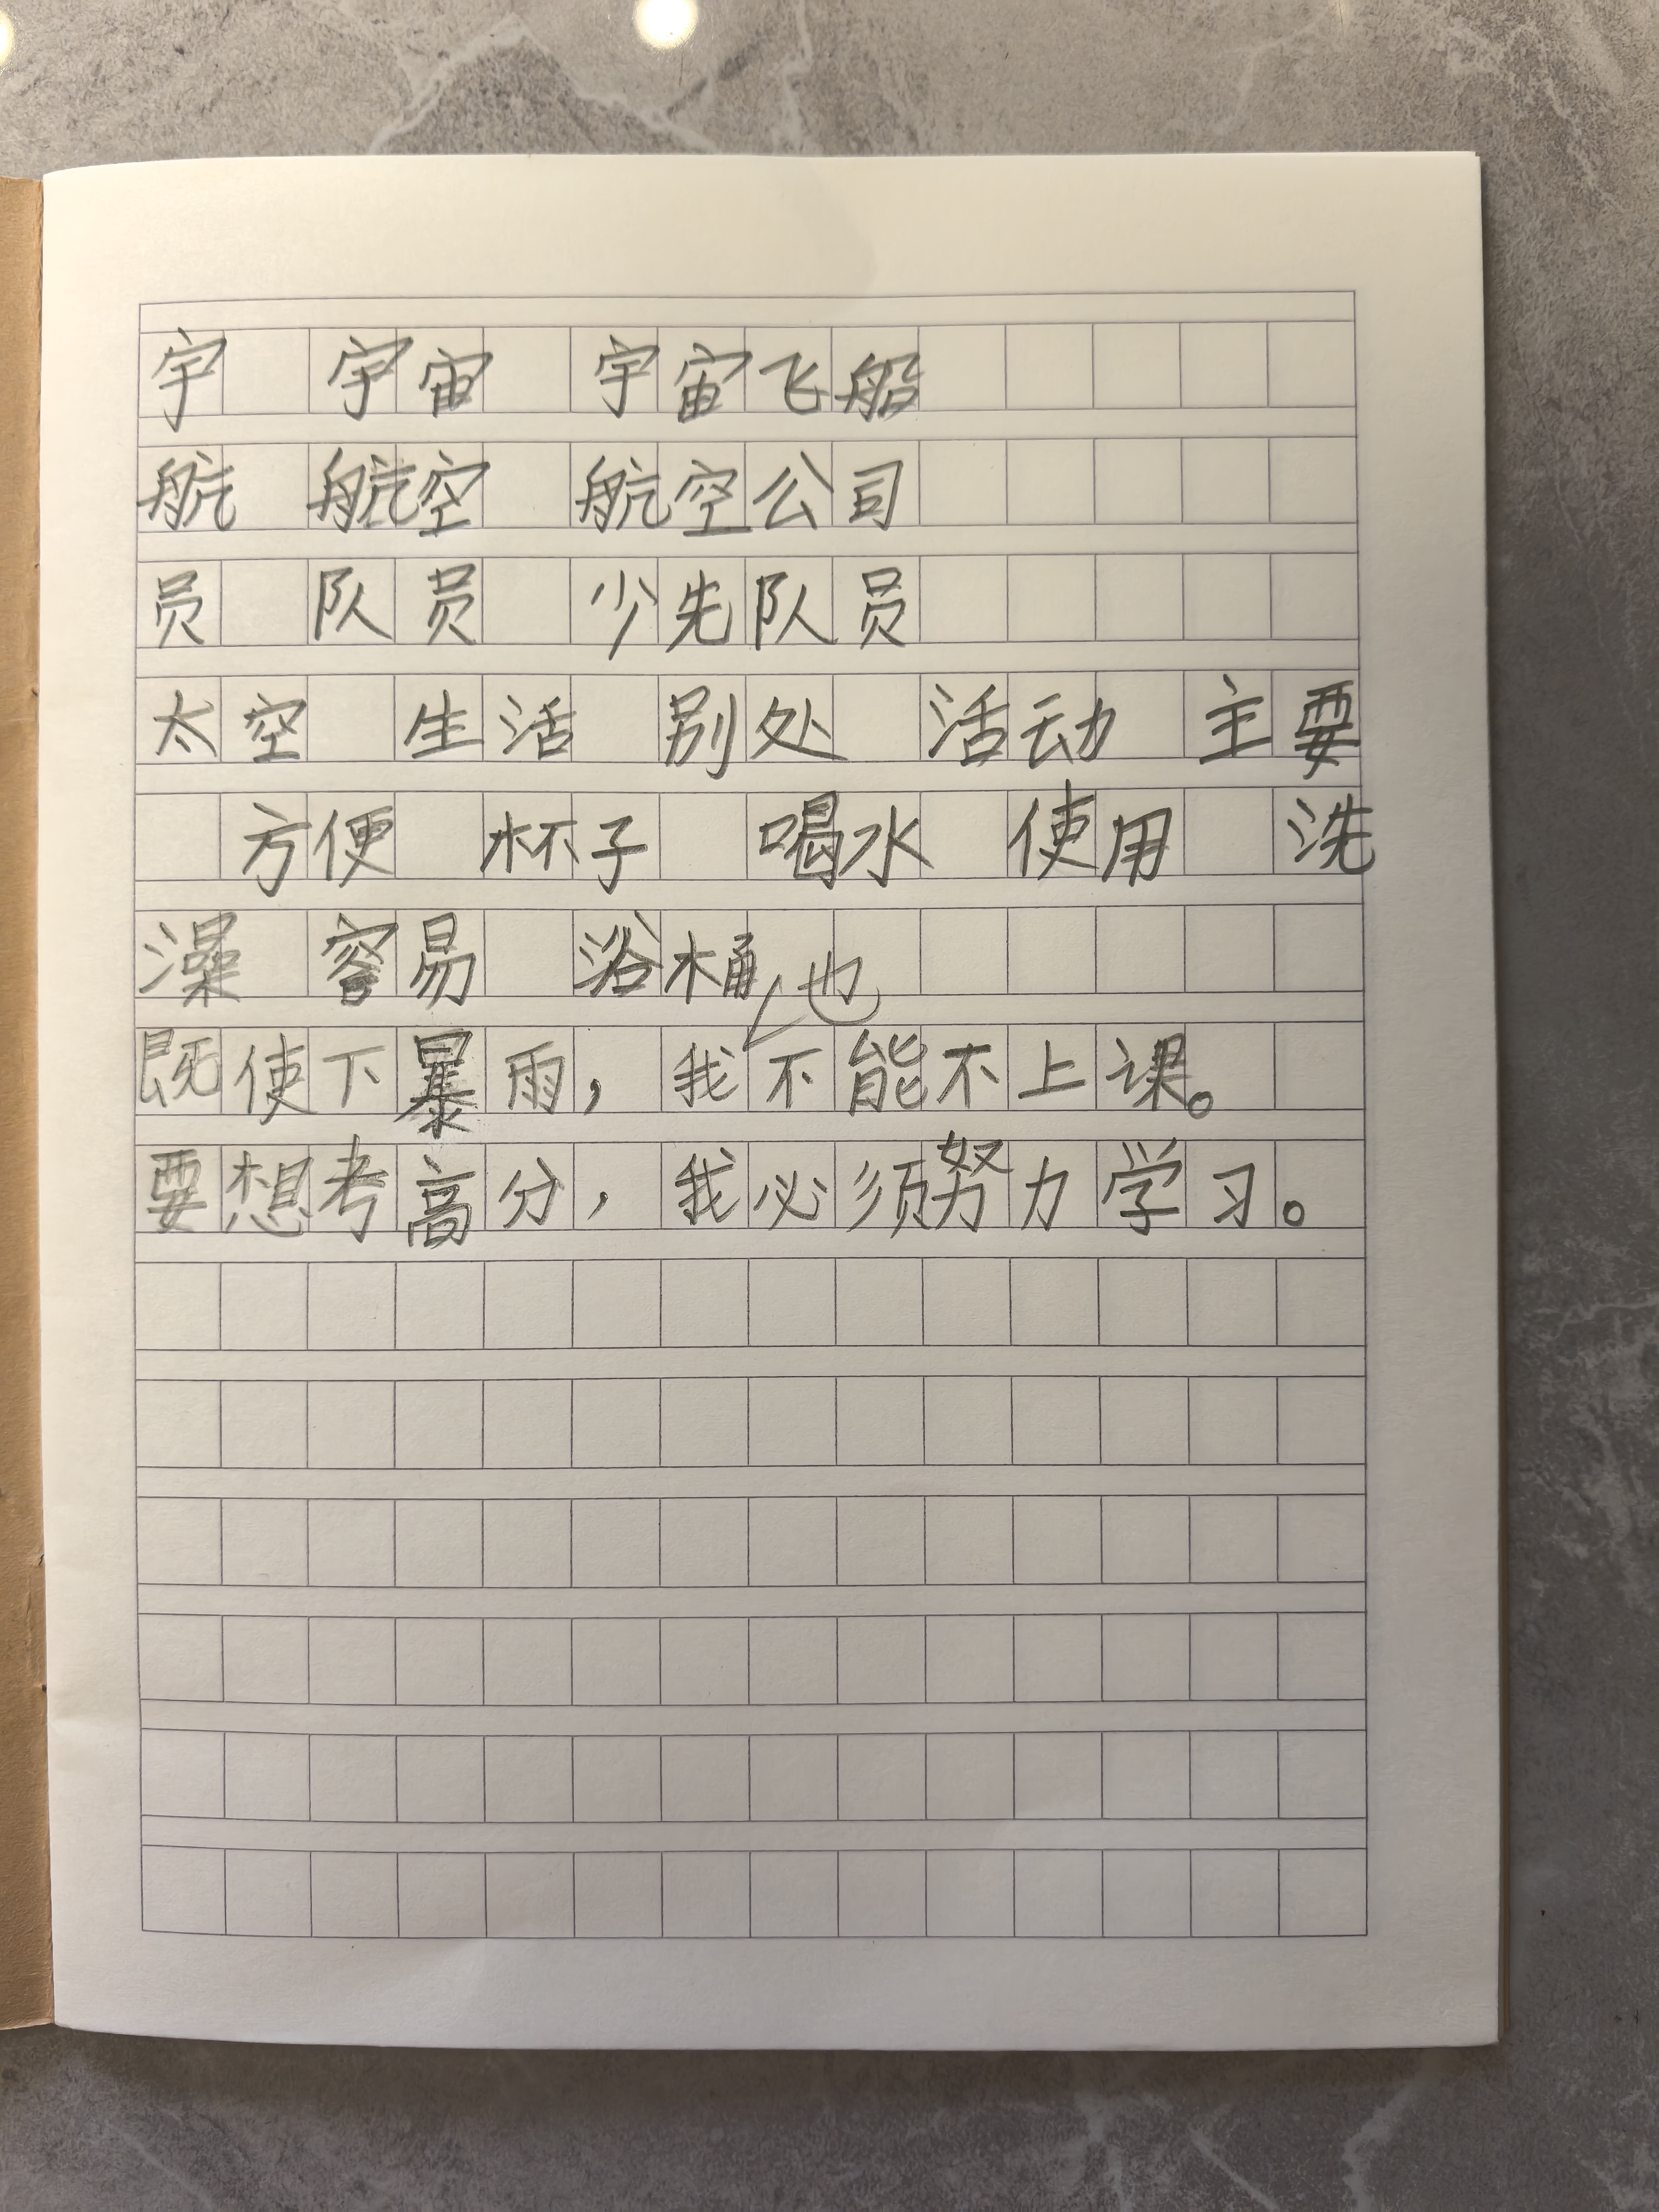 宇 宇宙 宇宙飞船
航 航空 航空公司
员 队员 少先队员
太空 生活 别处 活动 主要
方便 杯子 喝水 使用 洗
澡 容易 浴桶
既使下暴雨，我也不能不上课。
要想考高分，我必须努力学习。